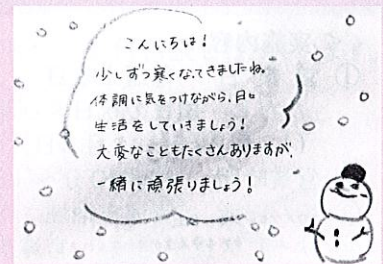 こんにちは!
少しずつ寒くなってきましたね。
体調に気をつけながら、日々
生活をしていきましょう!
大変なこともたくさんありますが、
一緒に頑張りましょう!